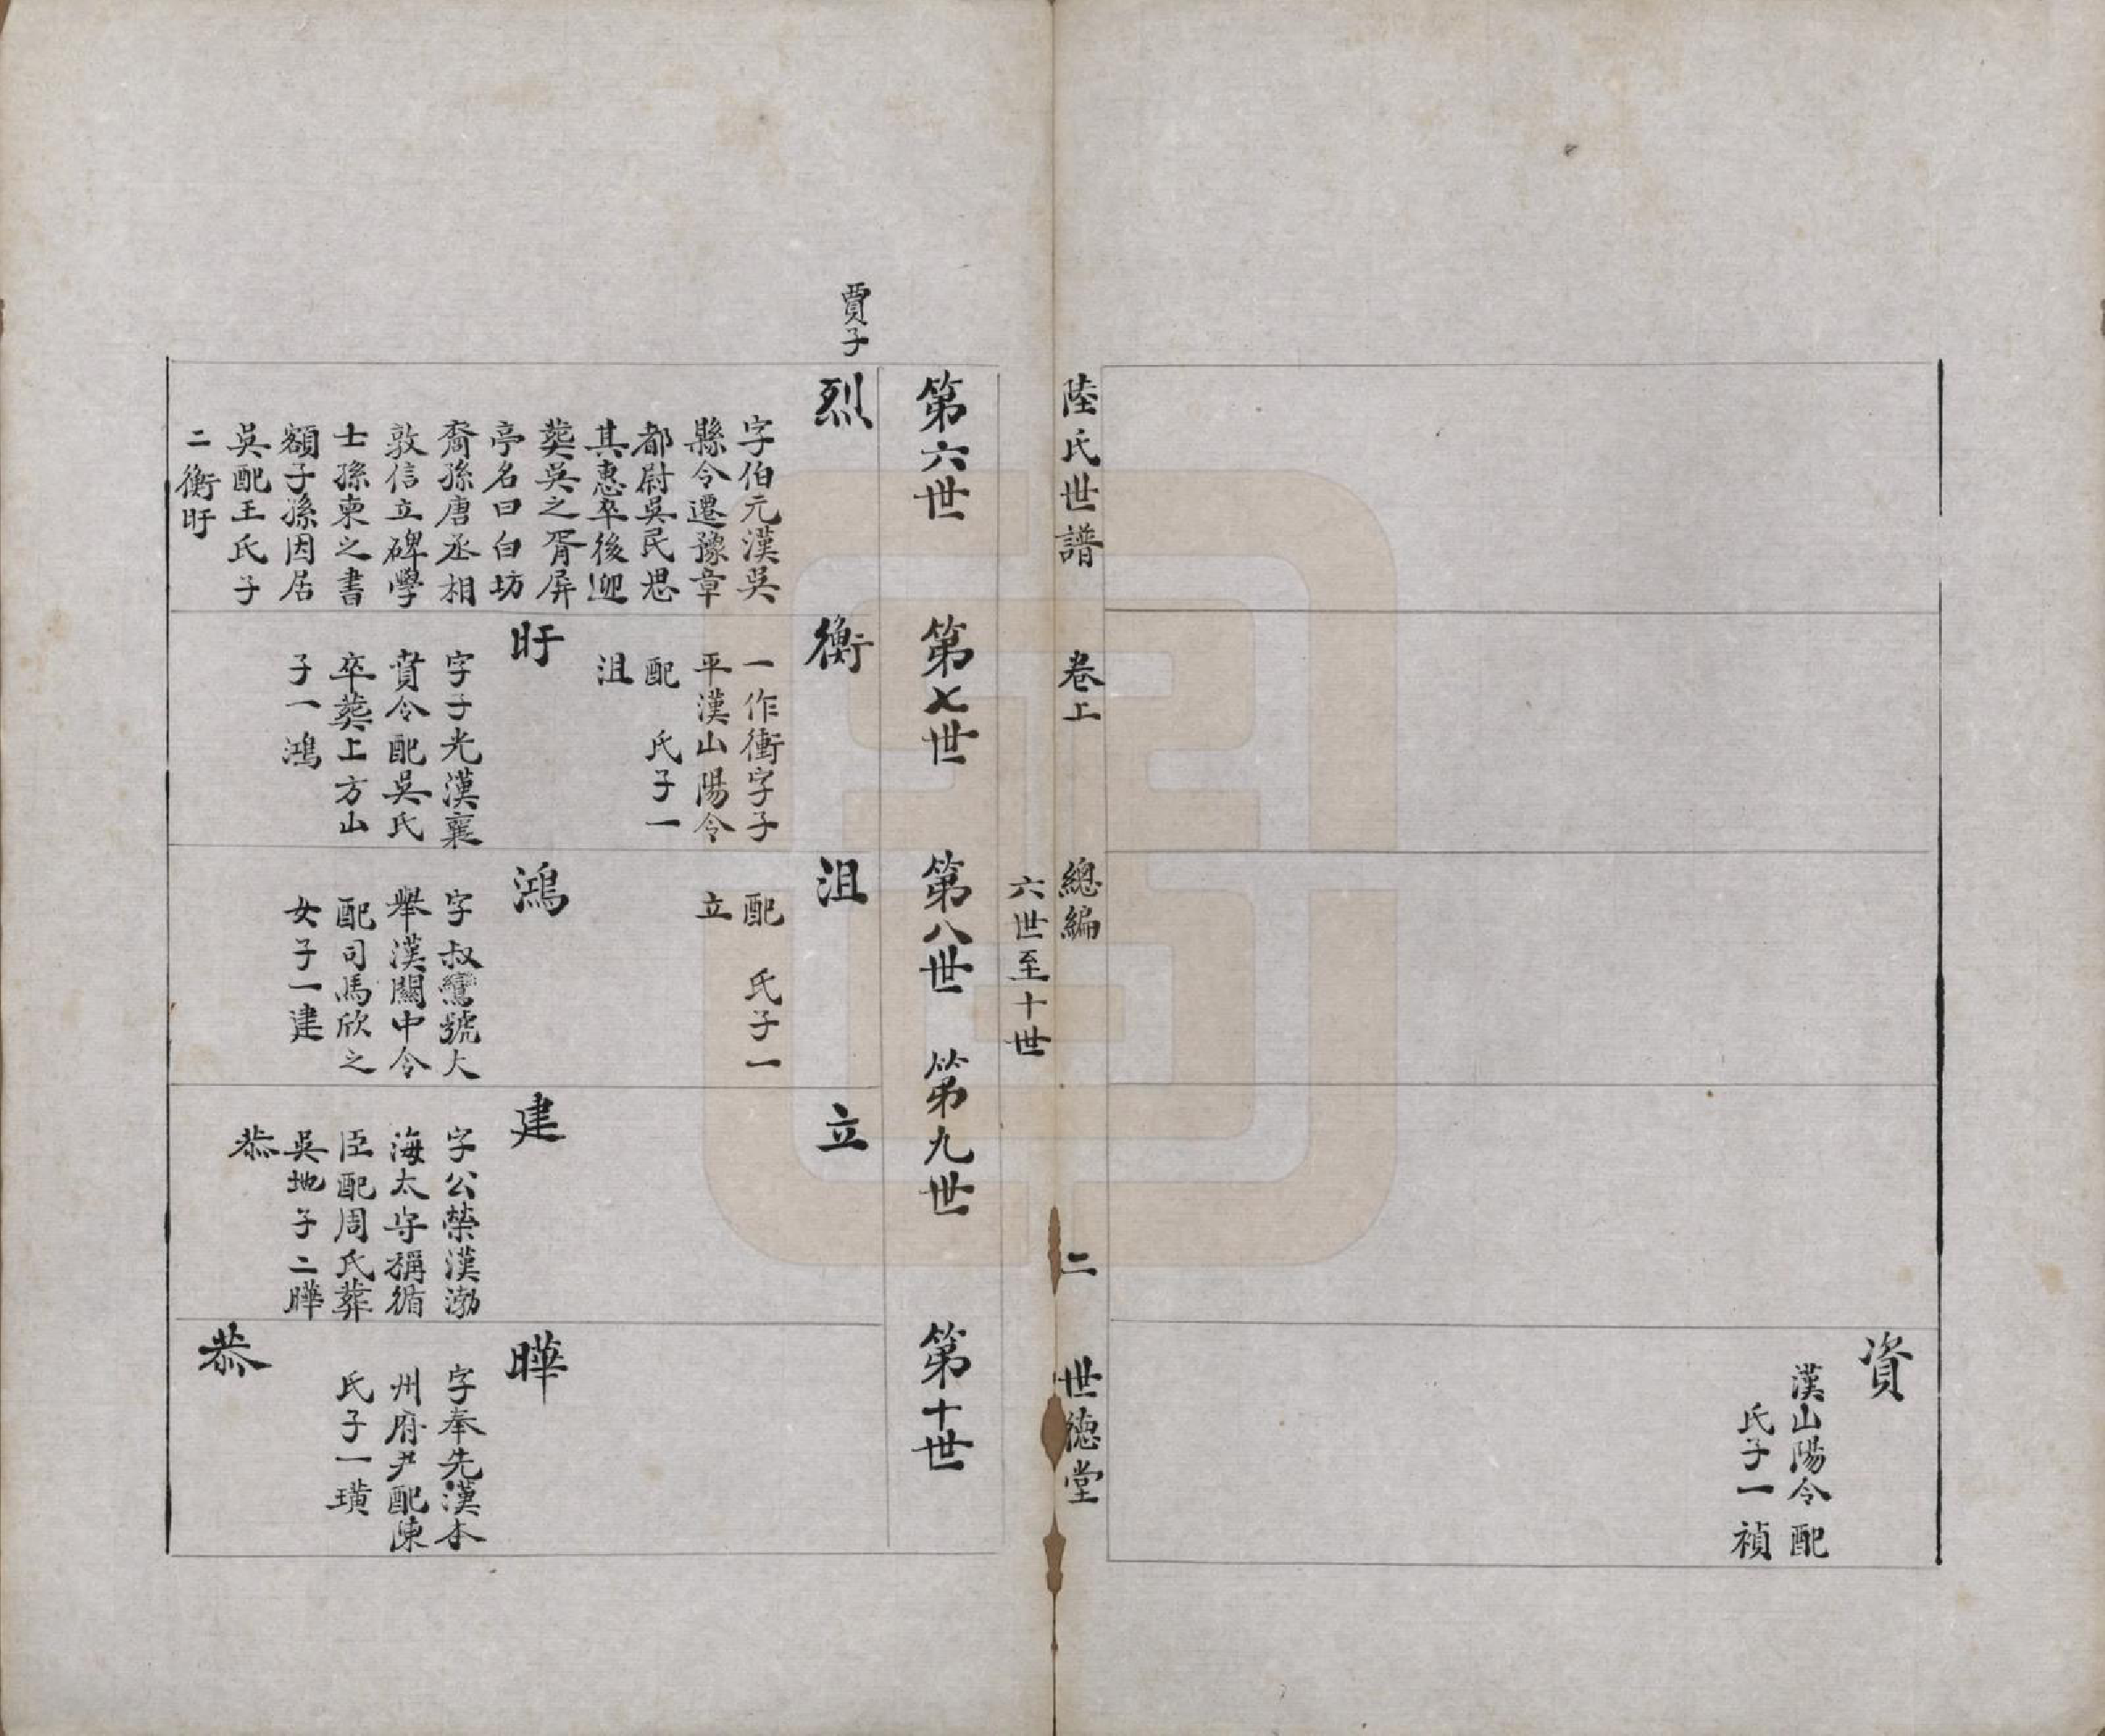 資
漢山陽令 配
氏子一 禎
陸氏世譜 卷上 總編 二 世德堂
六世至十世
第六世 第七世 第八世 第九世 第十世
賈子
烈
字伯元漢吳
縣令遷豫章
都尉吳民思
其惠卒後迎
葬吳之胥屏
亭名曰白坊
裔孫唐丞相
敦信立碑學
士孫柬之書
額子孫因居
吳配王氏子
二衡旴
衡
一作衝字子
平漢山陽令
配 氏子一
沮
旴
字子光漢襄
賁令配吳氏
卒葬上方山
子一鴻
沮
配 氏子一
立
鴻
字叔鸞號大
舉漢關中令
配司馬欣之
女子一建
立
建
字公榮漢渤
海太守稱循
臣配周氏葬
吳地子二曄
恭
曄
字奉先漢本
州府尹配陳
氏子一璜
恭